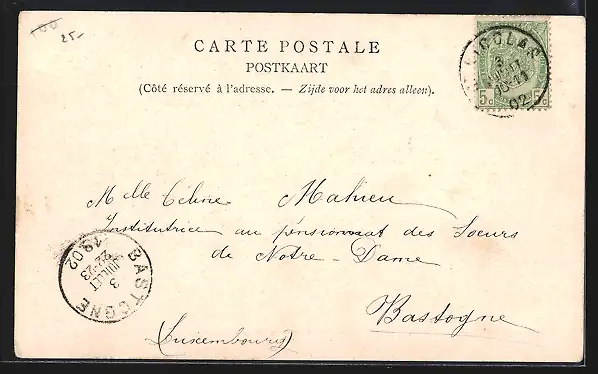 25.-
CARTE POSTALE
POSTKAART
(Côté réservé à l'adresse. — Zijde voor het adres alleen).
NICOLAS
3
02
5c 5c
Melle Céline Mahieu
Institutrice au pensionnat des Soeurs
de Notre-Dame
Bastogne
(Luxembourg)
BASTOGNE
3
JUILLET
22-23
1902